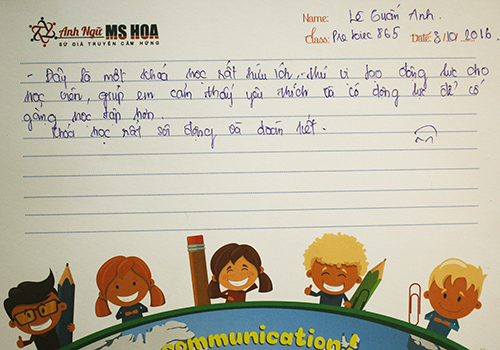 Anh Ngữ MS HOA
SỨ GIẢ TRUYỀN CẢM HỨNG
Name: Lê Tuấn Anh.
Class: Pre toiec 865 Date: 3/10/2016.
- Đây là một khoá học rất hữu ích, thú vị tạo động lực cho
học viên, giúp em cảm thấy yêu thích và có động lực để cố
gắng học tập hơn.
Khoá học rất sôi động và đoàn kết.
communication